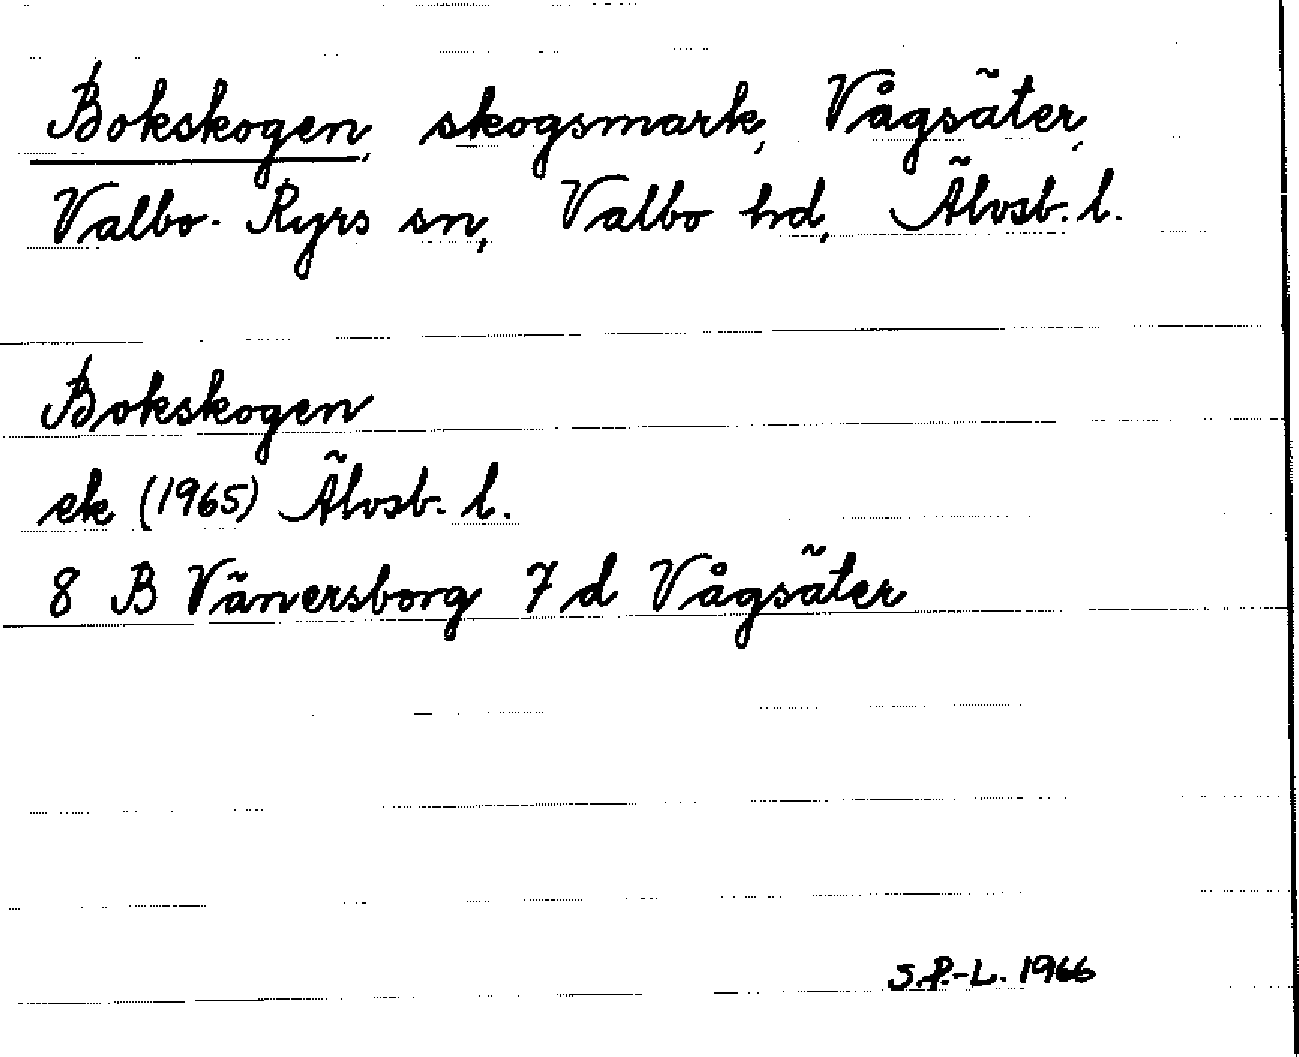 Bokskogen, skogsmark, Vågsäter,
Valbo-Ryrs sn, Valbo hd, Älvsb. l.
Bokskogen
ek (1965) Älvsb. l.
8 B Vänersborg 7 d Vågsäter
S.P.-L. 1966